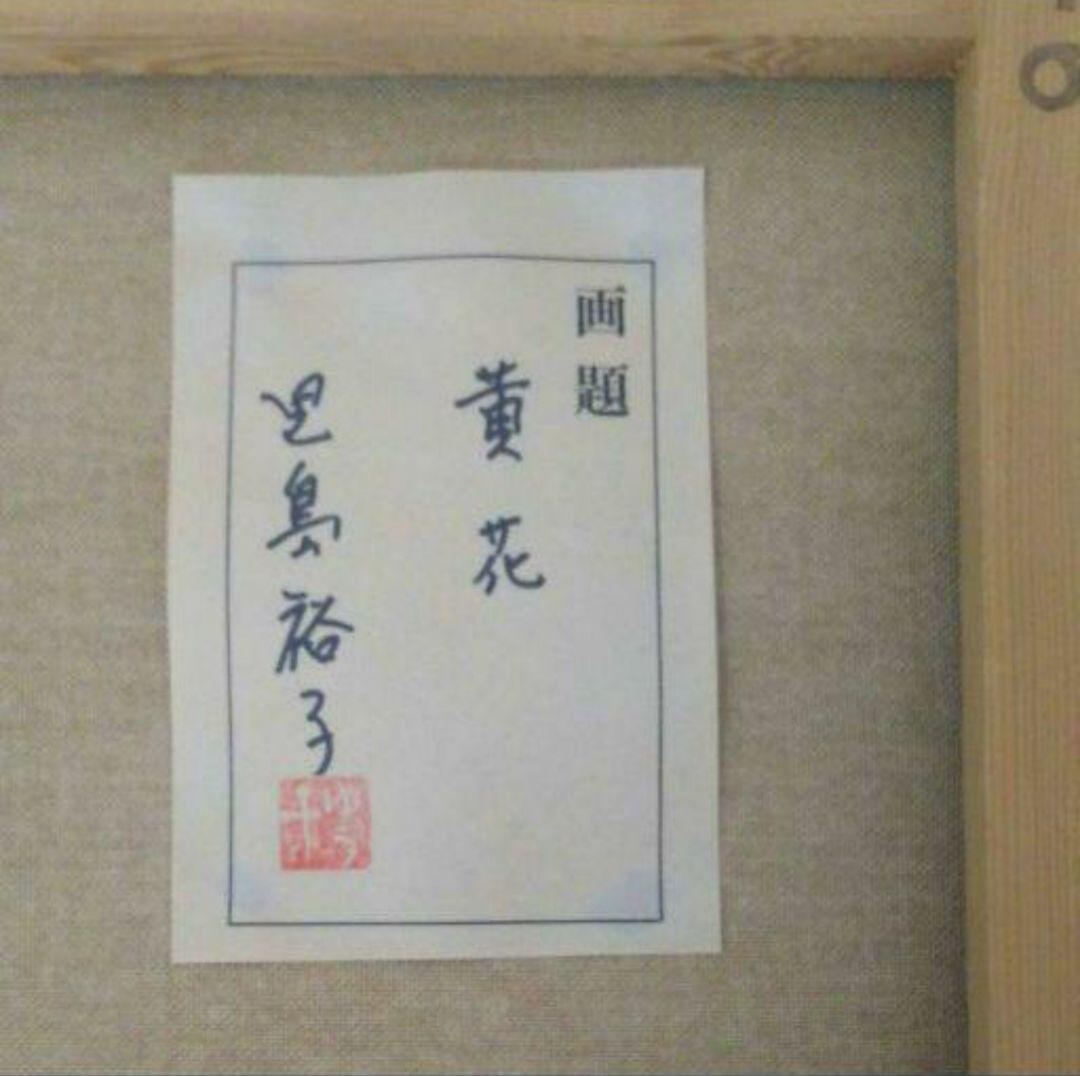 画題
黄花
児島裕子